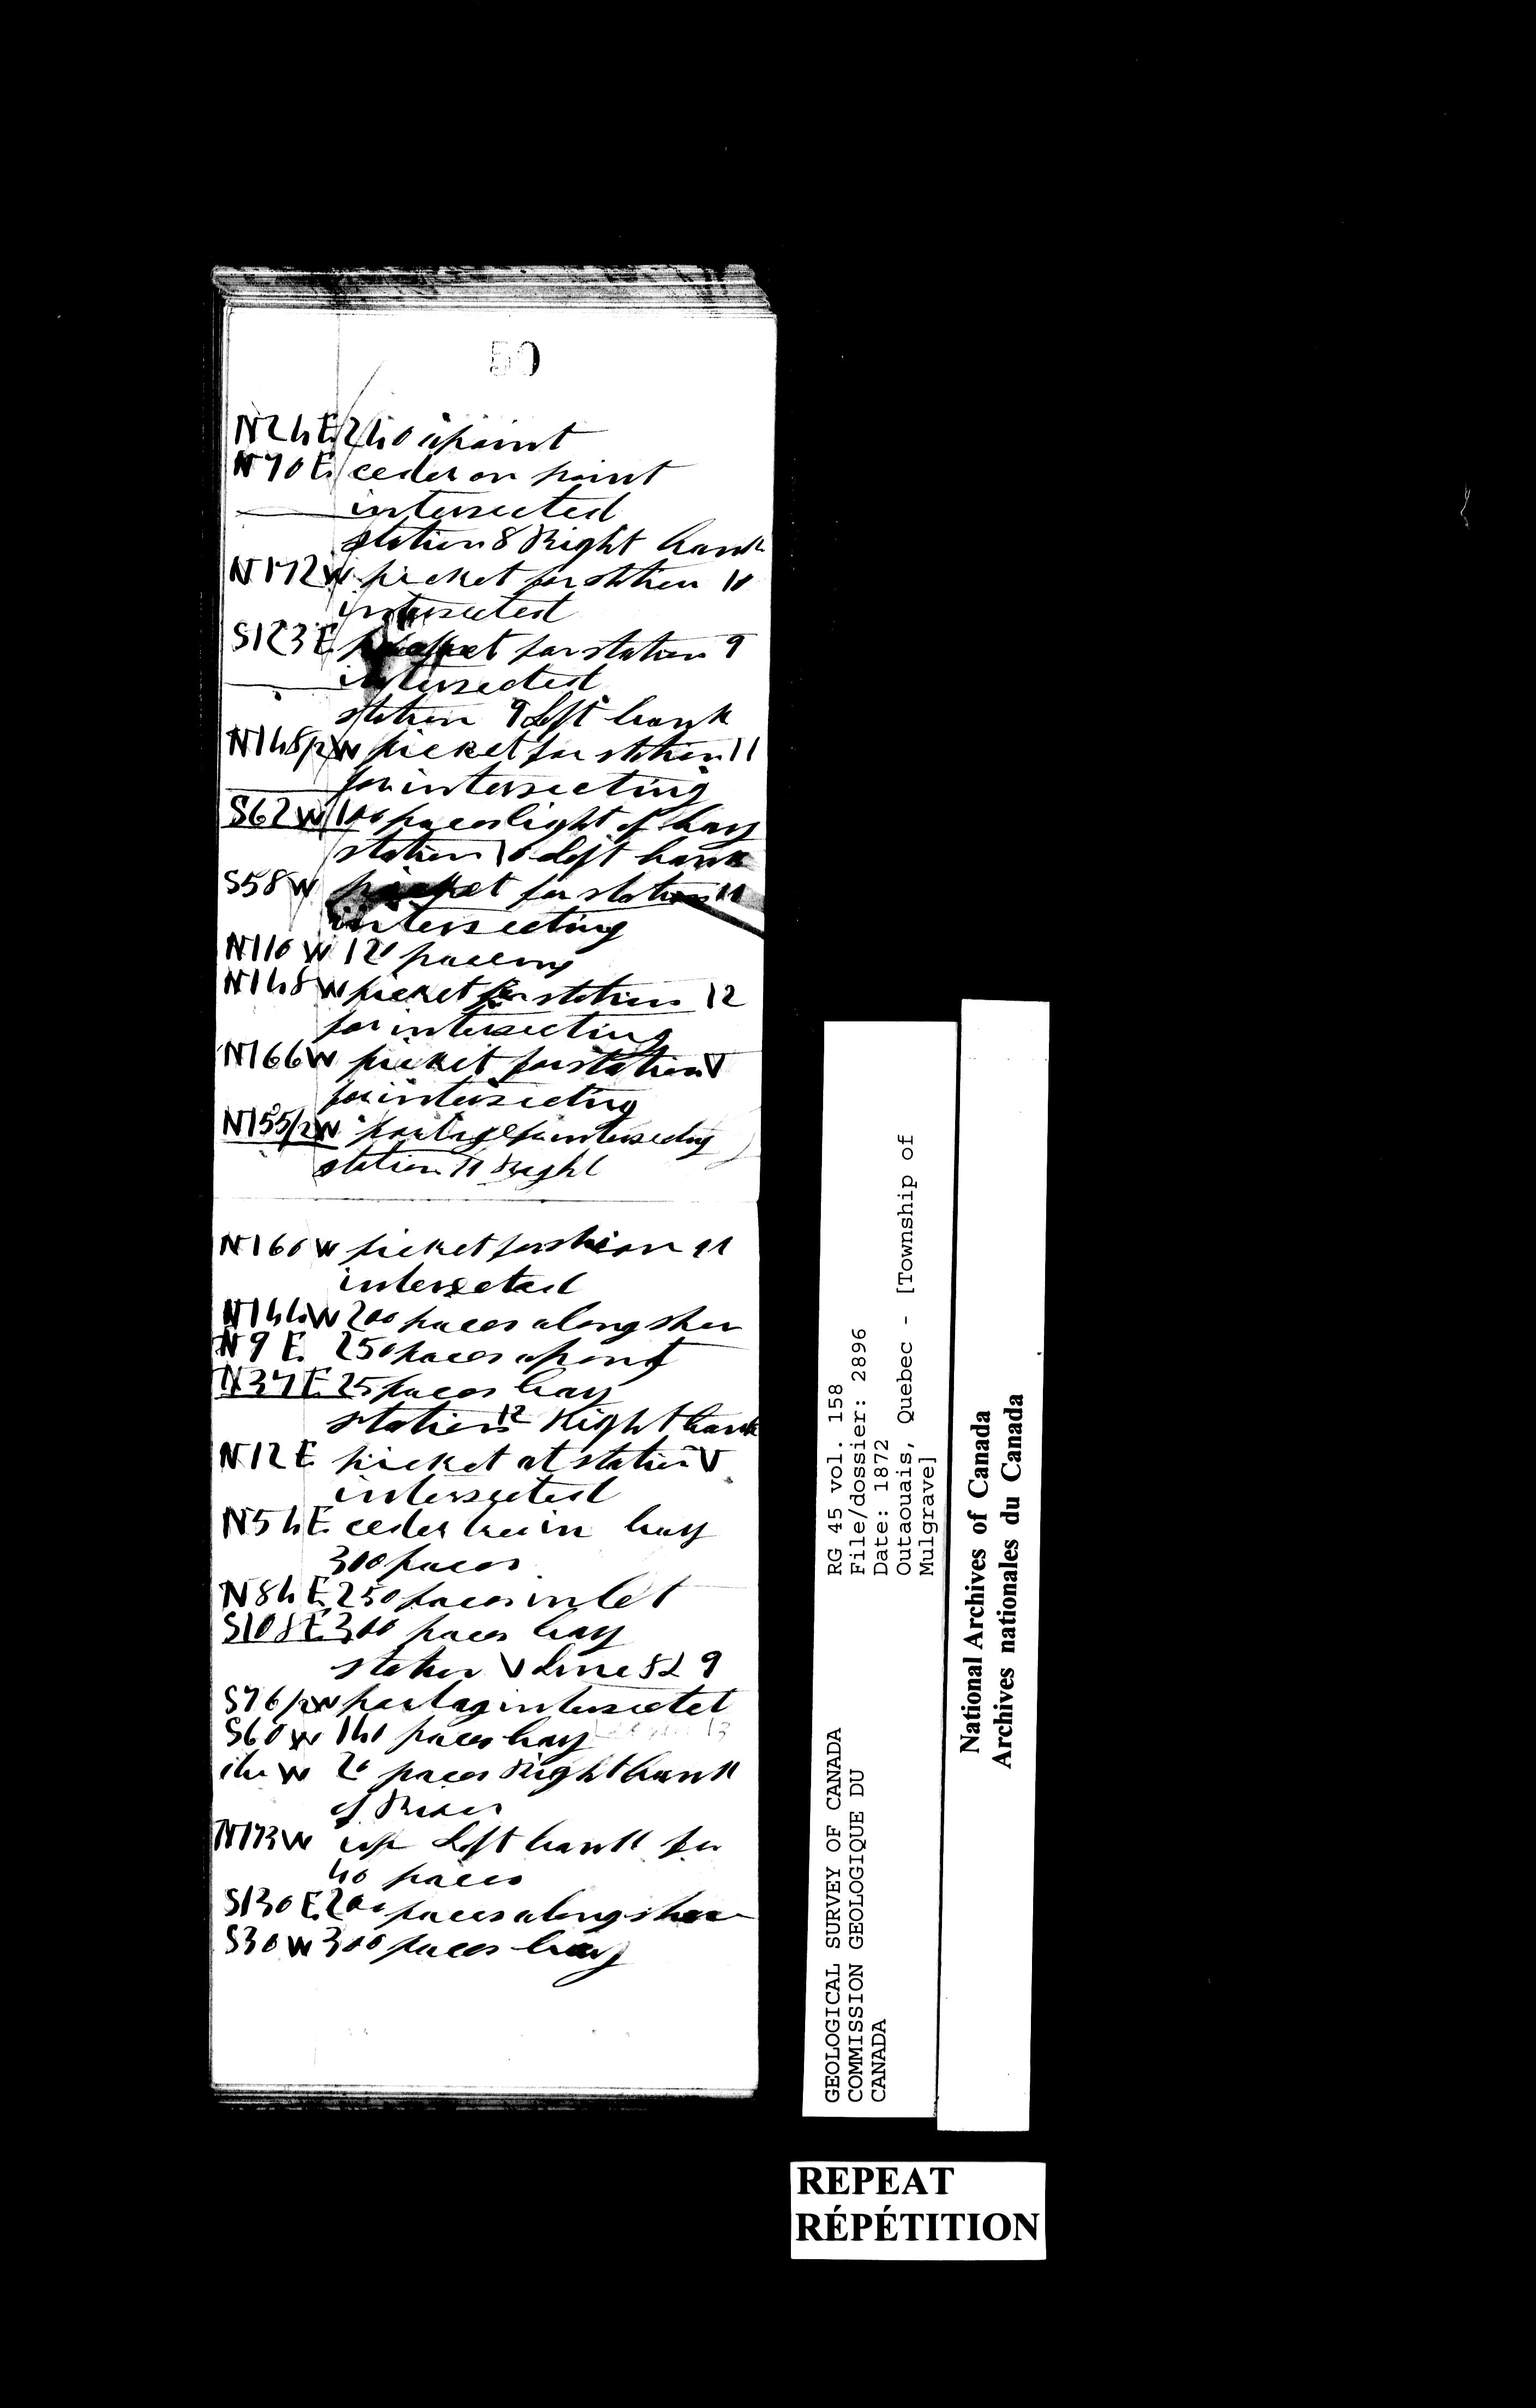 50
N24E 240 apoint
N70E ceder on point
intersected
station 8 Right bank
N172W picket for station 10
intersected
S123E picket for station 9
intersected
station 9 Left bank
N148/2W picket for station 11
for intersecting
S62W 100 paces of bay
station 10 Left bank
S58W picket for station 11
intersecting
N110W 120 paceing
N148W picket for station 12
for intersecting
N166W picket for station V
for intersecting
N155/2W portage for intersecting
station 11 Right
N160W picket for station 11
intersected
N144W 200 paces along shor
N9E 250 paces apoint
N37E 25 paces bay
station 12 Right bank
N12E picket at station V
intersected
N54E ceder bay
300 paces
N84E 250 paces inlet
S108E 300 paces bay
station V Line 8 & 9
S76/2W portag intersectet
S60W 140 paces bay
W 20 paces Right bank
of River
N173W up Left bank for
40 paces
S130E 200 paces along shor
S30W 300 paces bay
GEOLOGICAL SURVEY OF CANADA
COMMISSION GEOLOGIQUE DU
CANADA
RG 45 vol. 158
File/dossier: 2896
Date: 1872
Outaouais, Quebec - [Township of
Mulgrave]
National Archives of Canada
Archives nationales du Canada
REPEAT
RÉPÉTITION